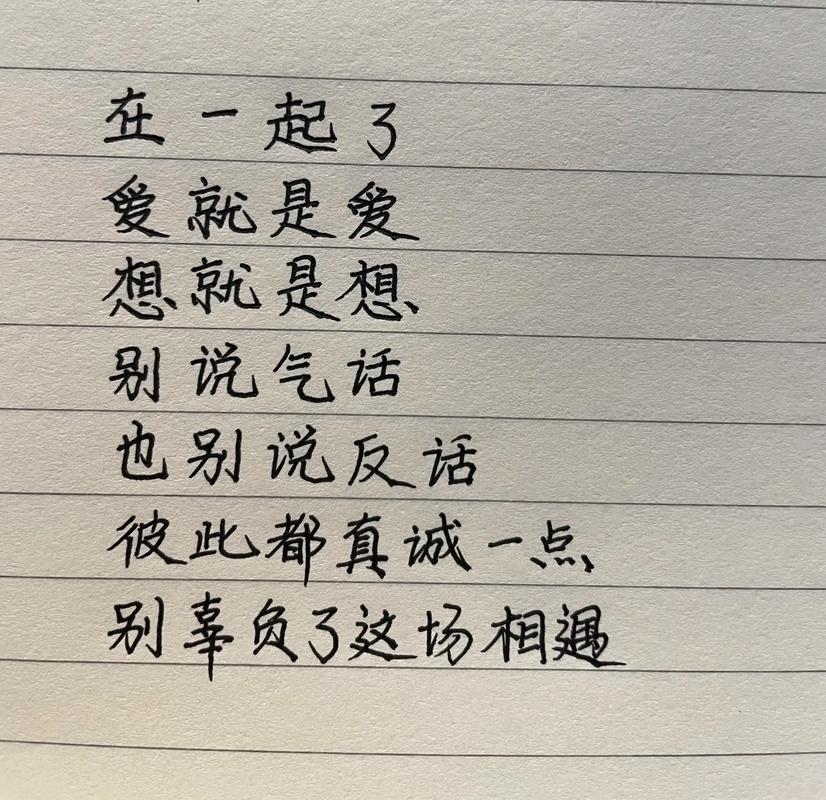 在一起了
爱就是爱
想就是想
别说气话
也别说反话
彼此都真诚一点
别辜负了这场相遇